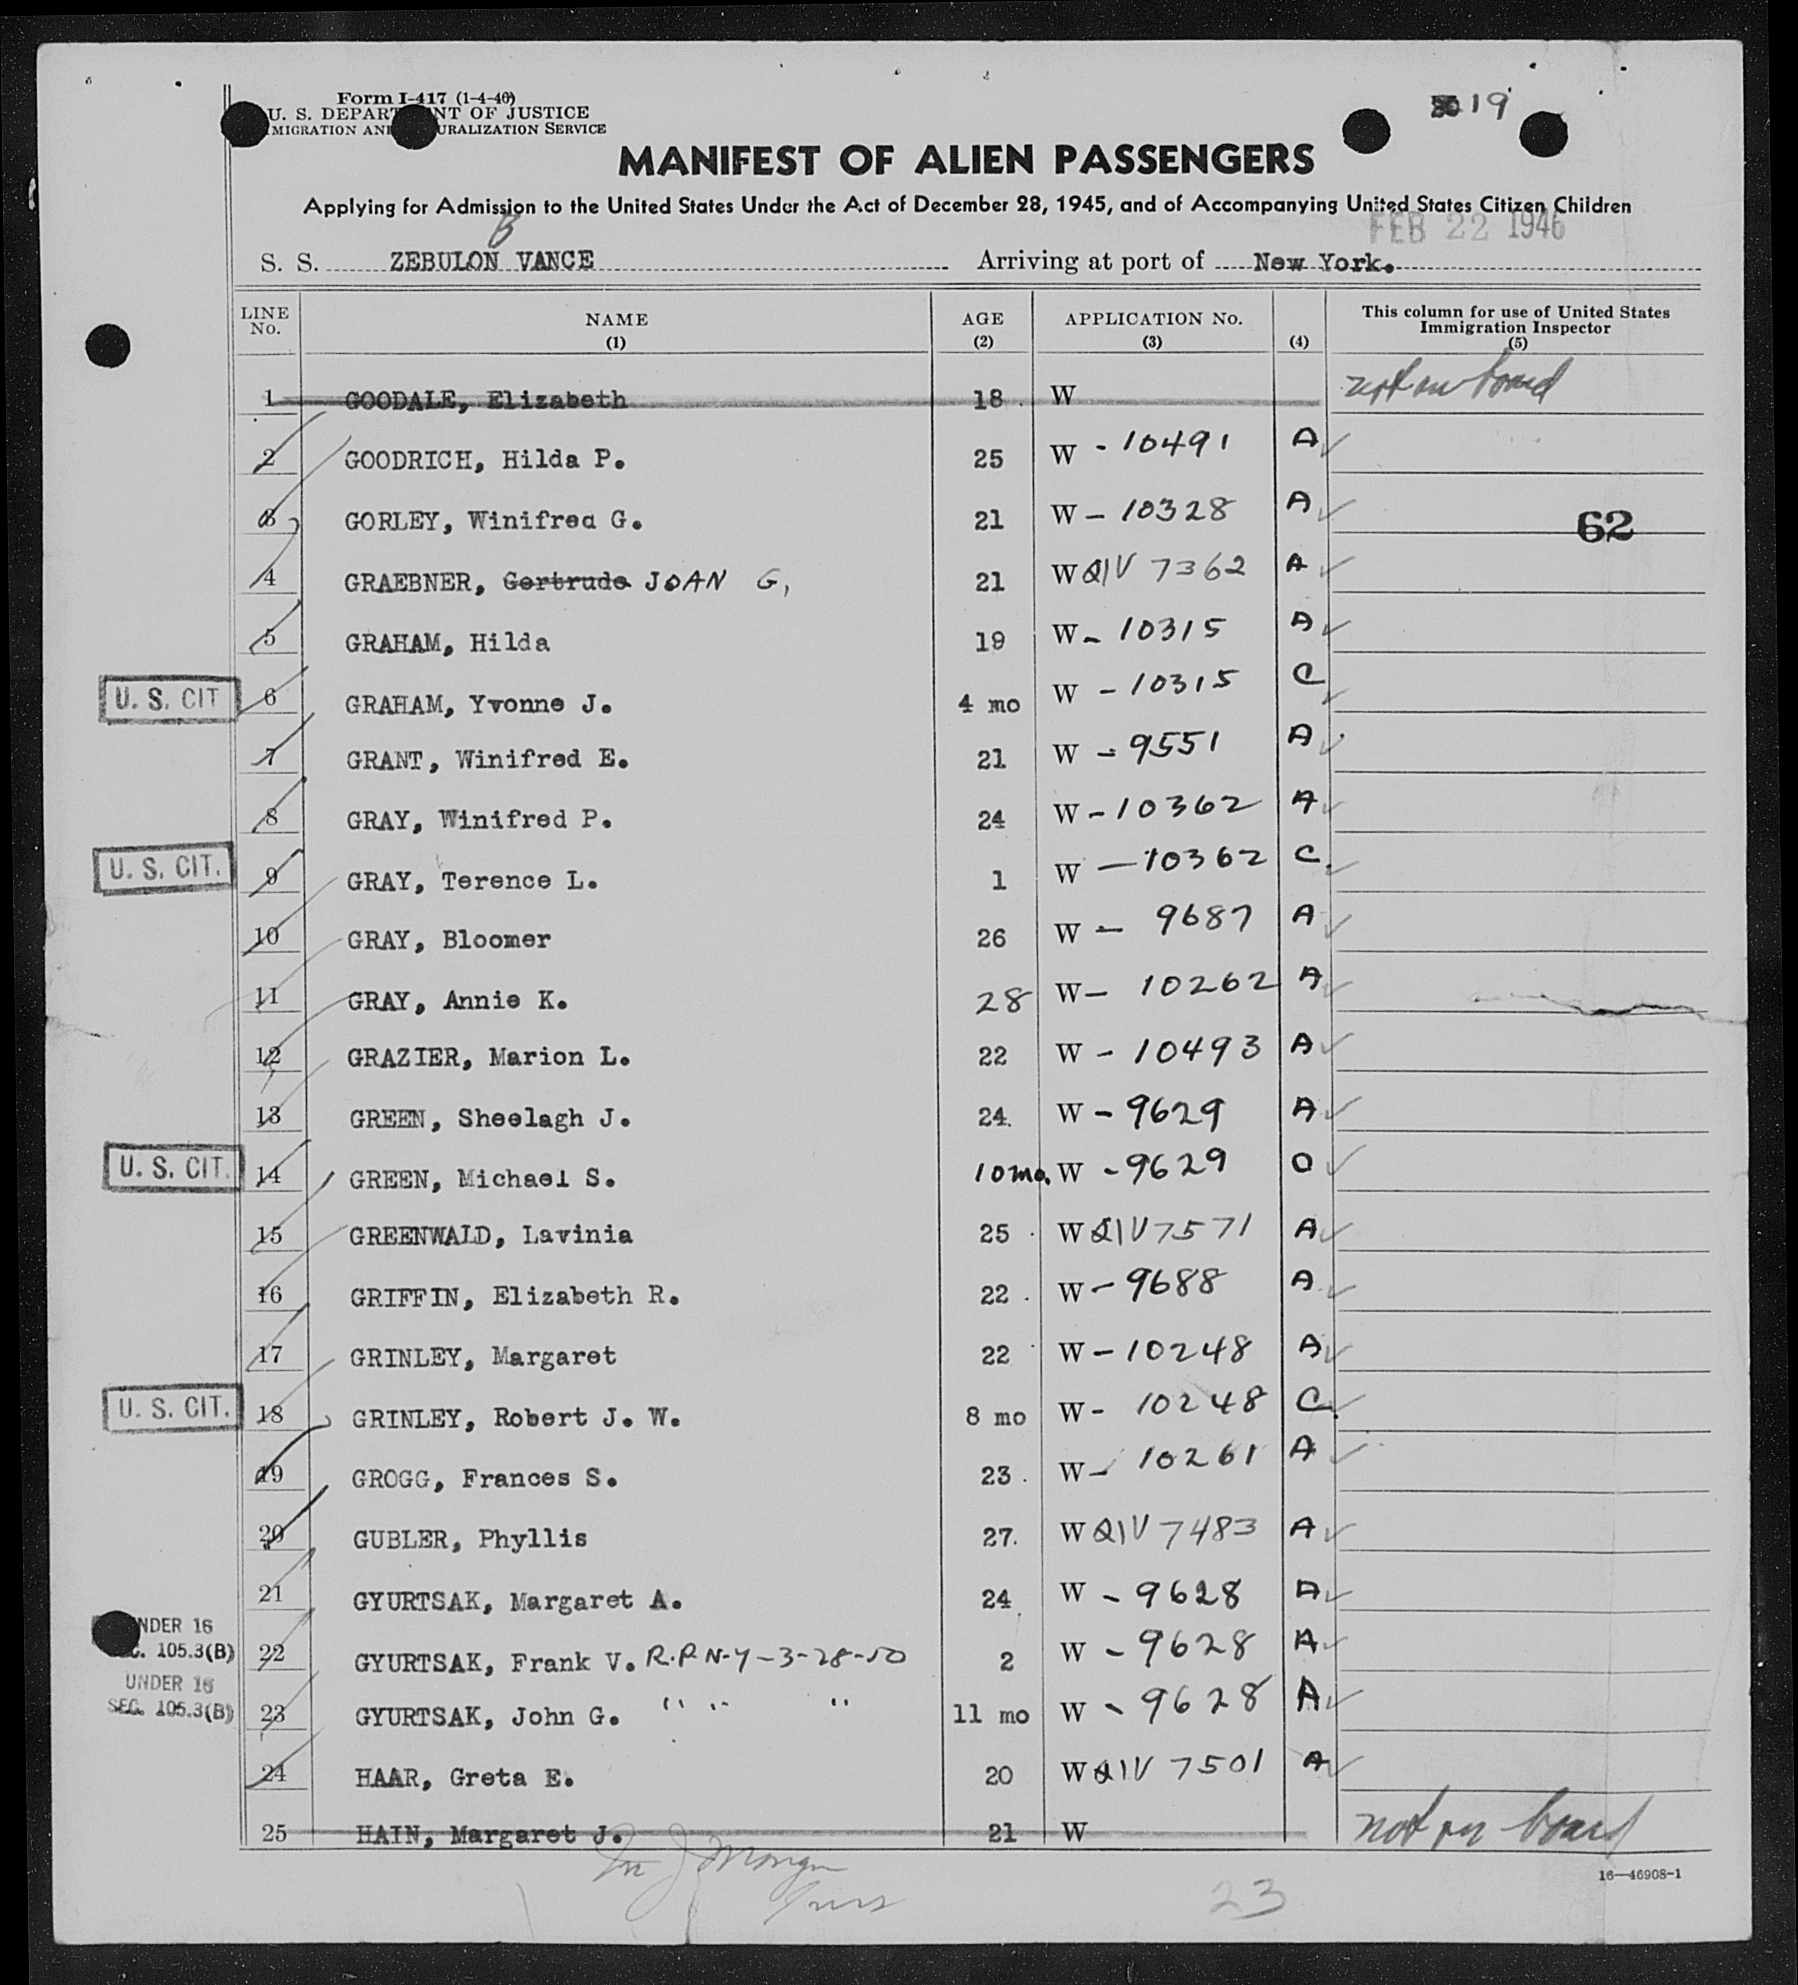 Form I-417 (1-4-46)
U. S. DEPAR NT OF JUSTICE
MIGRATION AN URALIZATION SERVICE
19
MANIFEST OF ALIEN PASSENGERS
Applying for Admission to the United States Under the Act of December 28, 1945, and of Accompanying United States Citizen Children
FEB 22 1946
B
S. S. ZEBULON VANCE Arriving at port of New York.
LINE No. NAME (1) AGE (2) APPLICATION No. (3) (4) This column for use of United States Immigration Inspector (5)
1 GOODALE, Elizabeth 18 W not on board
2 GOODRICH, Hilda P. 25 W - 10491 A
3 GORLEY, Winifred G. 21 W - 10328 A
62
4 GRAEBNER, Gertrude JOAN G, 21 W QIV 7362 A
5 GRAHAM, Hilda 19 W - 10315 A
U. S. CIT 6 GRAHAM, Yvonne J. 4 mo W - 10315 C
7 GRANT, Winifred E. 21 W - 9551 A
8 GRAY, Winifred P. 24 W - 10362 A
U. S. CIT. 9 GRAY, Terence L. 1 W - 10362 C
10 GRAY, Bloomer 26 W - 9687 A
11 GRAY, Annie K. 28 W - 10262 A
12 GRAZIER, Marion L. 22 W - 10493 A
13 GREEN, Sheelagh J. 24. W - 9629 A
U. S. CIT. 14 GREEN, Michael S. 10 mo. W - 9629 C
15 GREENWALD, Lavinia 25 W QIV 7571 A
16 GRIFFIN, Elizabeth R. 22 W - 9688 A
17 GRINLEY, Margaret 22 W - 10248 A
U. S. CIT. 18 GRINLEY, Robert J. W. 8 mo W - 10248 C
19 GROGG, Frances S. 23 W - 10261 A
20 GUBLER, Phyllis 27. W QIV 7483 A
21 GYURTSAK, Margaret A. 24 W - 9628 A
NDER 16
C. 105.3(B) 22 GYURTSAK, Frank V. R.P N.Y - 3-28-50 2 W - 9628 A
UNDER 16
SEC. 105.3(B) 23 GYURTSAK, John G. " " " 11 mo W - 9628 A
24 HAAR, Greta E. 20 W QIV 7501 A
25 HAIN, Margaret J. 21 W not on board
16—46908-1
23